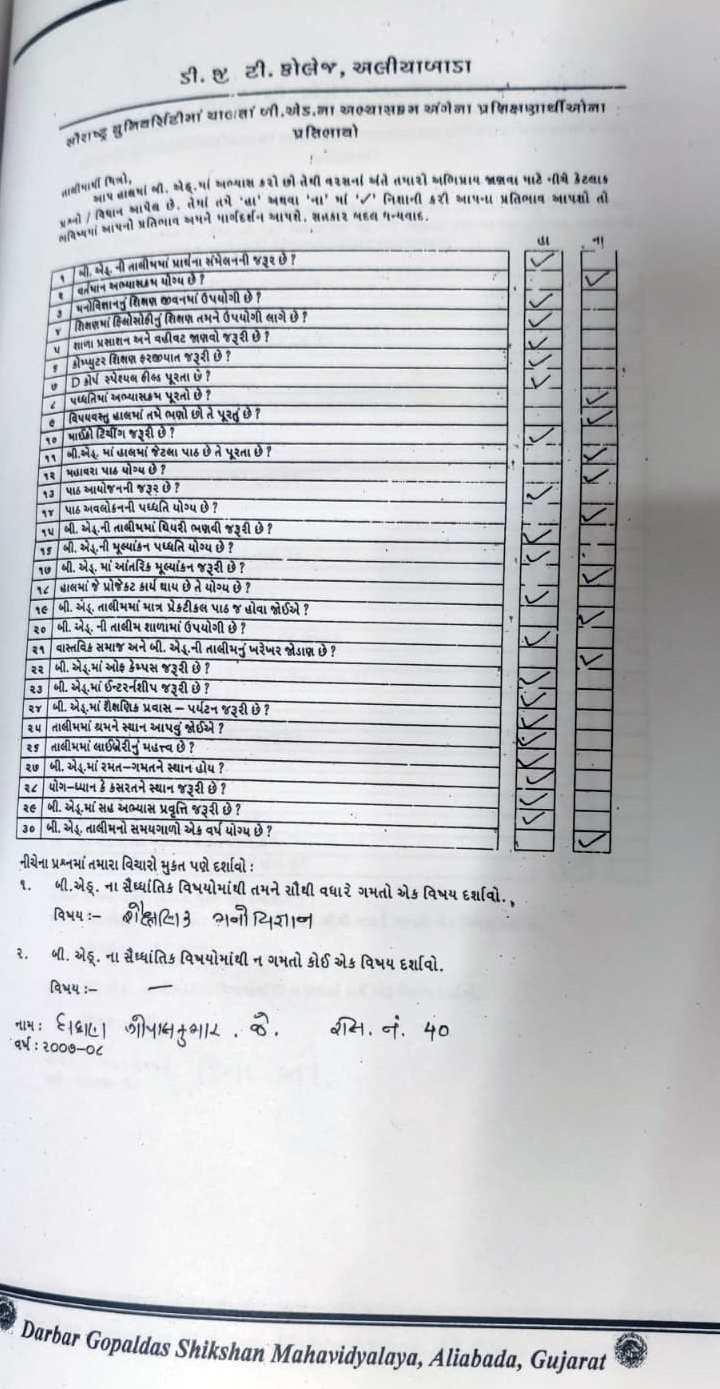 ડી. જી ટી. કોલેજ, અલીયાબાડા
સૌરાષ્ટ્ર યુનિવર્સિટીમાં ચાલતાં બી.એડ.ના અભ્યાસક્રમ અંગેના પ્રશિક્ષણાર્થીઓના
પ્રતિભાવો
તાલીમાર્થી મિત્રો,
આપ હાલમાં બી. એડ્.માં અભ્યાસ કરો છો તેથી વરસનાં અંતે તમારો અભિપ્રાય જાણવા માટે નીચે કેટલાક
પ્રશ્નો / વિધાન આપેલ છે. તેમાં તમે 'હા' અથવા 'ના' માં '✓' નિશાની કરી આપના પ્રતિભાવ આપશો તો
ભવિષ્યમાં આપનો પ્રતિભાવ અમને માર્ગદર્શન આપશે. સહકાર બદલ ધન્યવાદ.
હા ના
૧ બી. એડ્. ની તાલીમમાં પ્રાર્થના સંમેલનની જરૂર છે ? ✓
૨ વર્તમાન અભ્યાસક્રમ યોગ્ય છે ? ✓
૩ મનોવિજ્ઞાનનું શિક્ષણ જીવનમાં ઉપયોગી છે ? ✓
૪ શિક્ષણમાં ફિલોસોફીનું શિક્ષણ તમને ઉપયોગી લાગે છે ? ✓
૫ શાળા પ્રશાશન અને વહીવટ જાણવો જરૂરી છે ? ✓
૬ કોમ્પ્યુટર શિક્ષણ ફરજીયાત જરૂરી છે ? ✓
૭ D કોર્પ સ્પેશ્યલ ફીલ્ડ પૂરતા છે ? ✓
૮ પધ્ધતિમાં અભ્યાસક્રમ પૂરતો છે ? ✓
૯ વિષયવસ્તુ હાલમાં તમે ભણો છો તે પૂરતું છે ? ✓
૧૦ માઈક્રો ટિચીંગ જરૂરી છે ? ✓
૧૧ બી.એડ્. માં હાલમાં જેટલા પાઠ છે તે પૂરતા છે ? ✓
૧૨ મહાવરા પાઠ યોગ્ય છે ? ✓
૧૩ પાઠ આયોજનની જરૂર છે ? ✓
૧૪ પાઠ અવલોકનની પધ્ધતિ યોગ્ય છે ? ✓
૧૫ બી. એડ્.ની તાલીમમાં થિયરી ભણવી જરૂરી છે ? ✓
૧૬ બી. એડ્.ની મૂલ્યાંકન પધ્ધતિ યોગ્ય છે ? ✓
૧૭ બી. એડ્. માં આંતરિક મૂલ્યાંકન જરૂરી છે ? ✓
૧૮ હાલમાં જે પ્રોજેકટ કાર્ય થાય છે તે યોગ્ય છે ? ✓
૧૯ બી. એડ્. તાલીમમાં માત્ર પ્રેકટીકલ પાઠ જ હોવા જોઈએ ? ✓
૨૦ બી. એડ્. ની તાલીમ શાળામાં ઉપયોગી છે ? ✓
૨૧ વાસ્તવિક સમાજ અને બી. એડ્.ની તાલીમનું ખરેખર જોડાણ છે ? ✓
૨૨ બી. એડ્.માં ઓફ કેમ્પસ જરૂરી છે ? ✓
૨૩ બી. એડ્.માં ઈન્ટરર્નશીપ જરૂરી છે ? ✓
૨૪ બી. એડ્.માં શૈક્ષણિક પ્રવાસ – પર્યટન જરૂરી છે ? ✓
૨૫ તાલીમમાં શ્રમને સ્થાન આપવું જોઈએ ? ✓
૨૬ તાલીમમાં લાઈબ્રેરીનું મહત્ત્વ છે ? ✓
૨૭ બી. એડ્.માં રમત–ગમતને સ્થાન હોય ? ✓
૨૮ યોગ–ધ્યાન કે કસરતને સ્થાન જરૂરી છે ? ✓
૨૯ બી. એડ્.માં સહ અભ્યાસ પ્રવૃત્તિ જરૂરી છે ? ✓
૩૦ બી. એડ્. તાલીમનો સમયગાળો એક વર્ષ યોગ્ય છે ? ✓
નીચેના પ્રશ્નમાં તમારા વિચારો મુકત પણે દર્શાવો :
૧. બી.એડ્. ના સૈધ્ધાંતિક વિષયોમાંથી તમને સૌથી વધારે ગમતો એક વિષય દર્શાવો.
વિષય :– શૈક્ષણિક મનોવિજ્ઞાન
૨. બી. એડ્. ના સૈધ્ધાંતિક વિષયોમાંથી ન ગમતો કોઈ એક વિષય દર્શાવો.
વિષય :– —
નામ : ગોપાલકુમાર . જે. નં. ૪૦
વર્ષ : ૨૦૦૭–૦૮
Darbar Gopaldas Shikshan Mahavidyalaya, Aliabada, Gujarat